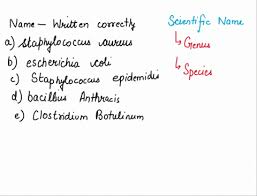 Name – Written correctly
a) Staphylococcus aureus
b) escherichia coli
c) Staphylococcus epidemidis
d) bacillus Anthracis
e) Clostridium Botulinum
Scientific Name
↳ Genus
↳ Species